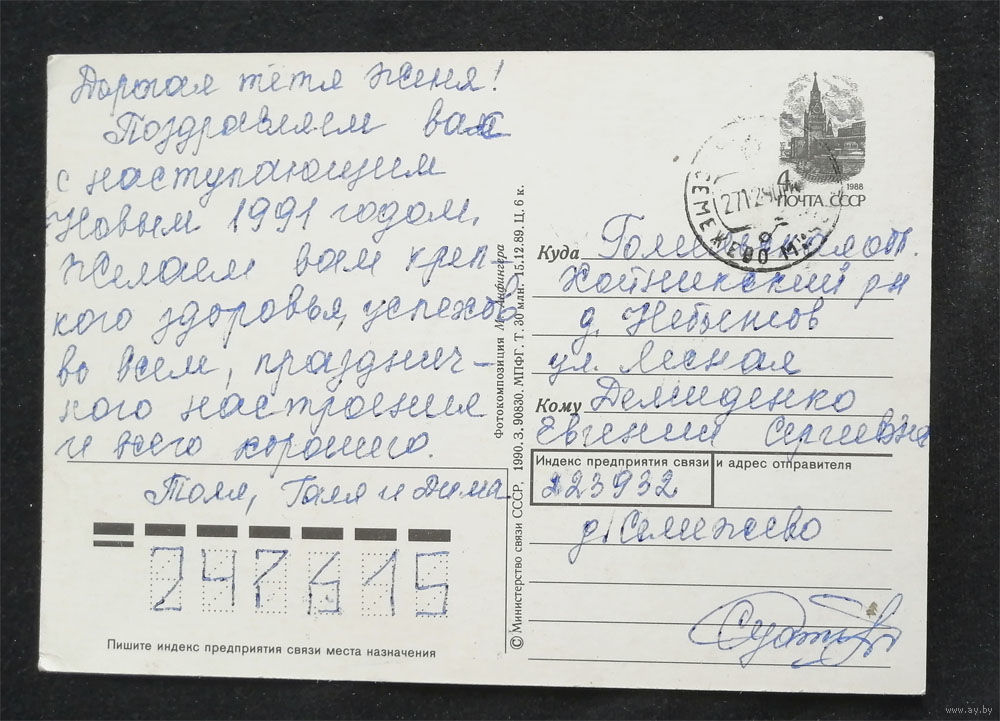 Дорогая тётя Женя!
Поздравляем вас
с наступающим
Новым 1991 годом.
Желаем вам креп-
кого здоровья, успехов
во всем, празднич-
ного настроения
и всего хорошего.
Толя, Галя и Дима
Пишите индекс предприятия связи места назначения
247615
© Министерство связи СССР, 1990. З. 90830. МПФГ. Т. 30 млн. 15.12.89. Ц. 6 к.
Фотокомпозиция М. Анфингера
4
1988
ПОЧТА СССР
СЕМЕЖЕВО
Куда
обл.
Хойникский рн
д. Небытов
ул. Лесная
Кому Демиденко
Евгении Сергиевне
Индекс предприятия связи и адрес отправителя
223932
д. Семежево
www.ay.by